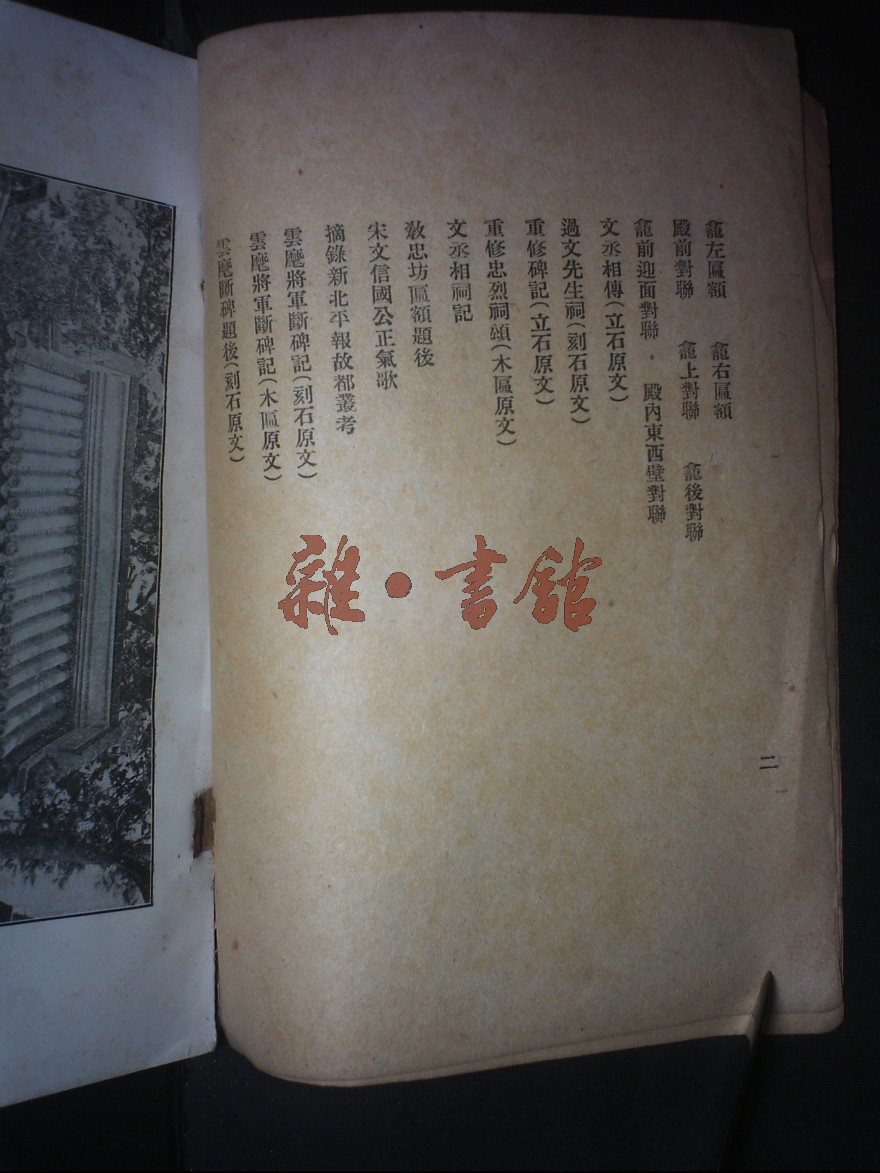 龕左匾額　龕右匾額
殿前對聯　龕上對聯　龕後對聯
龕前迎面對聯　殿內東西壁對聯
文丞相傳(立石原文)
過文先生祠(刻石原文)
重修碑記(立石原文)
重修忠烈祠頌(木匾原文)
文丞相祠記
敎忠坊匾額題後
宋文信國公正氣歌
摘錄新北平報故都叢考
雲麾將軍斷碑記(刻石原文)
雲麾將軍斷碑記(木匾原文)
雲麾斷碑題後(刻石原文)
二
雜·書館